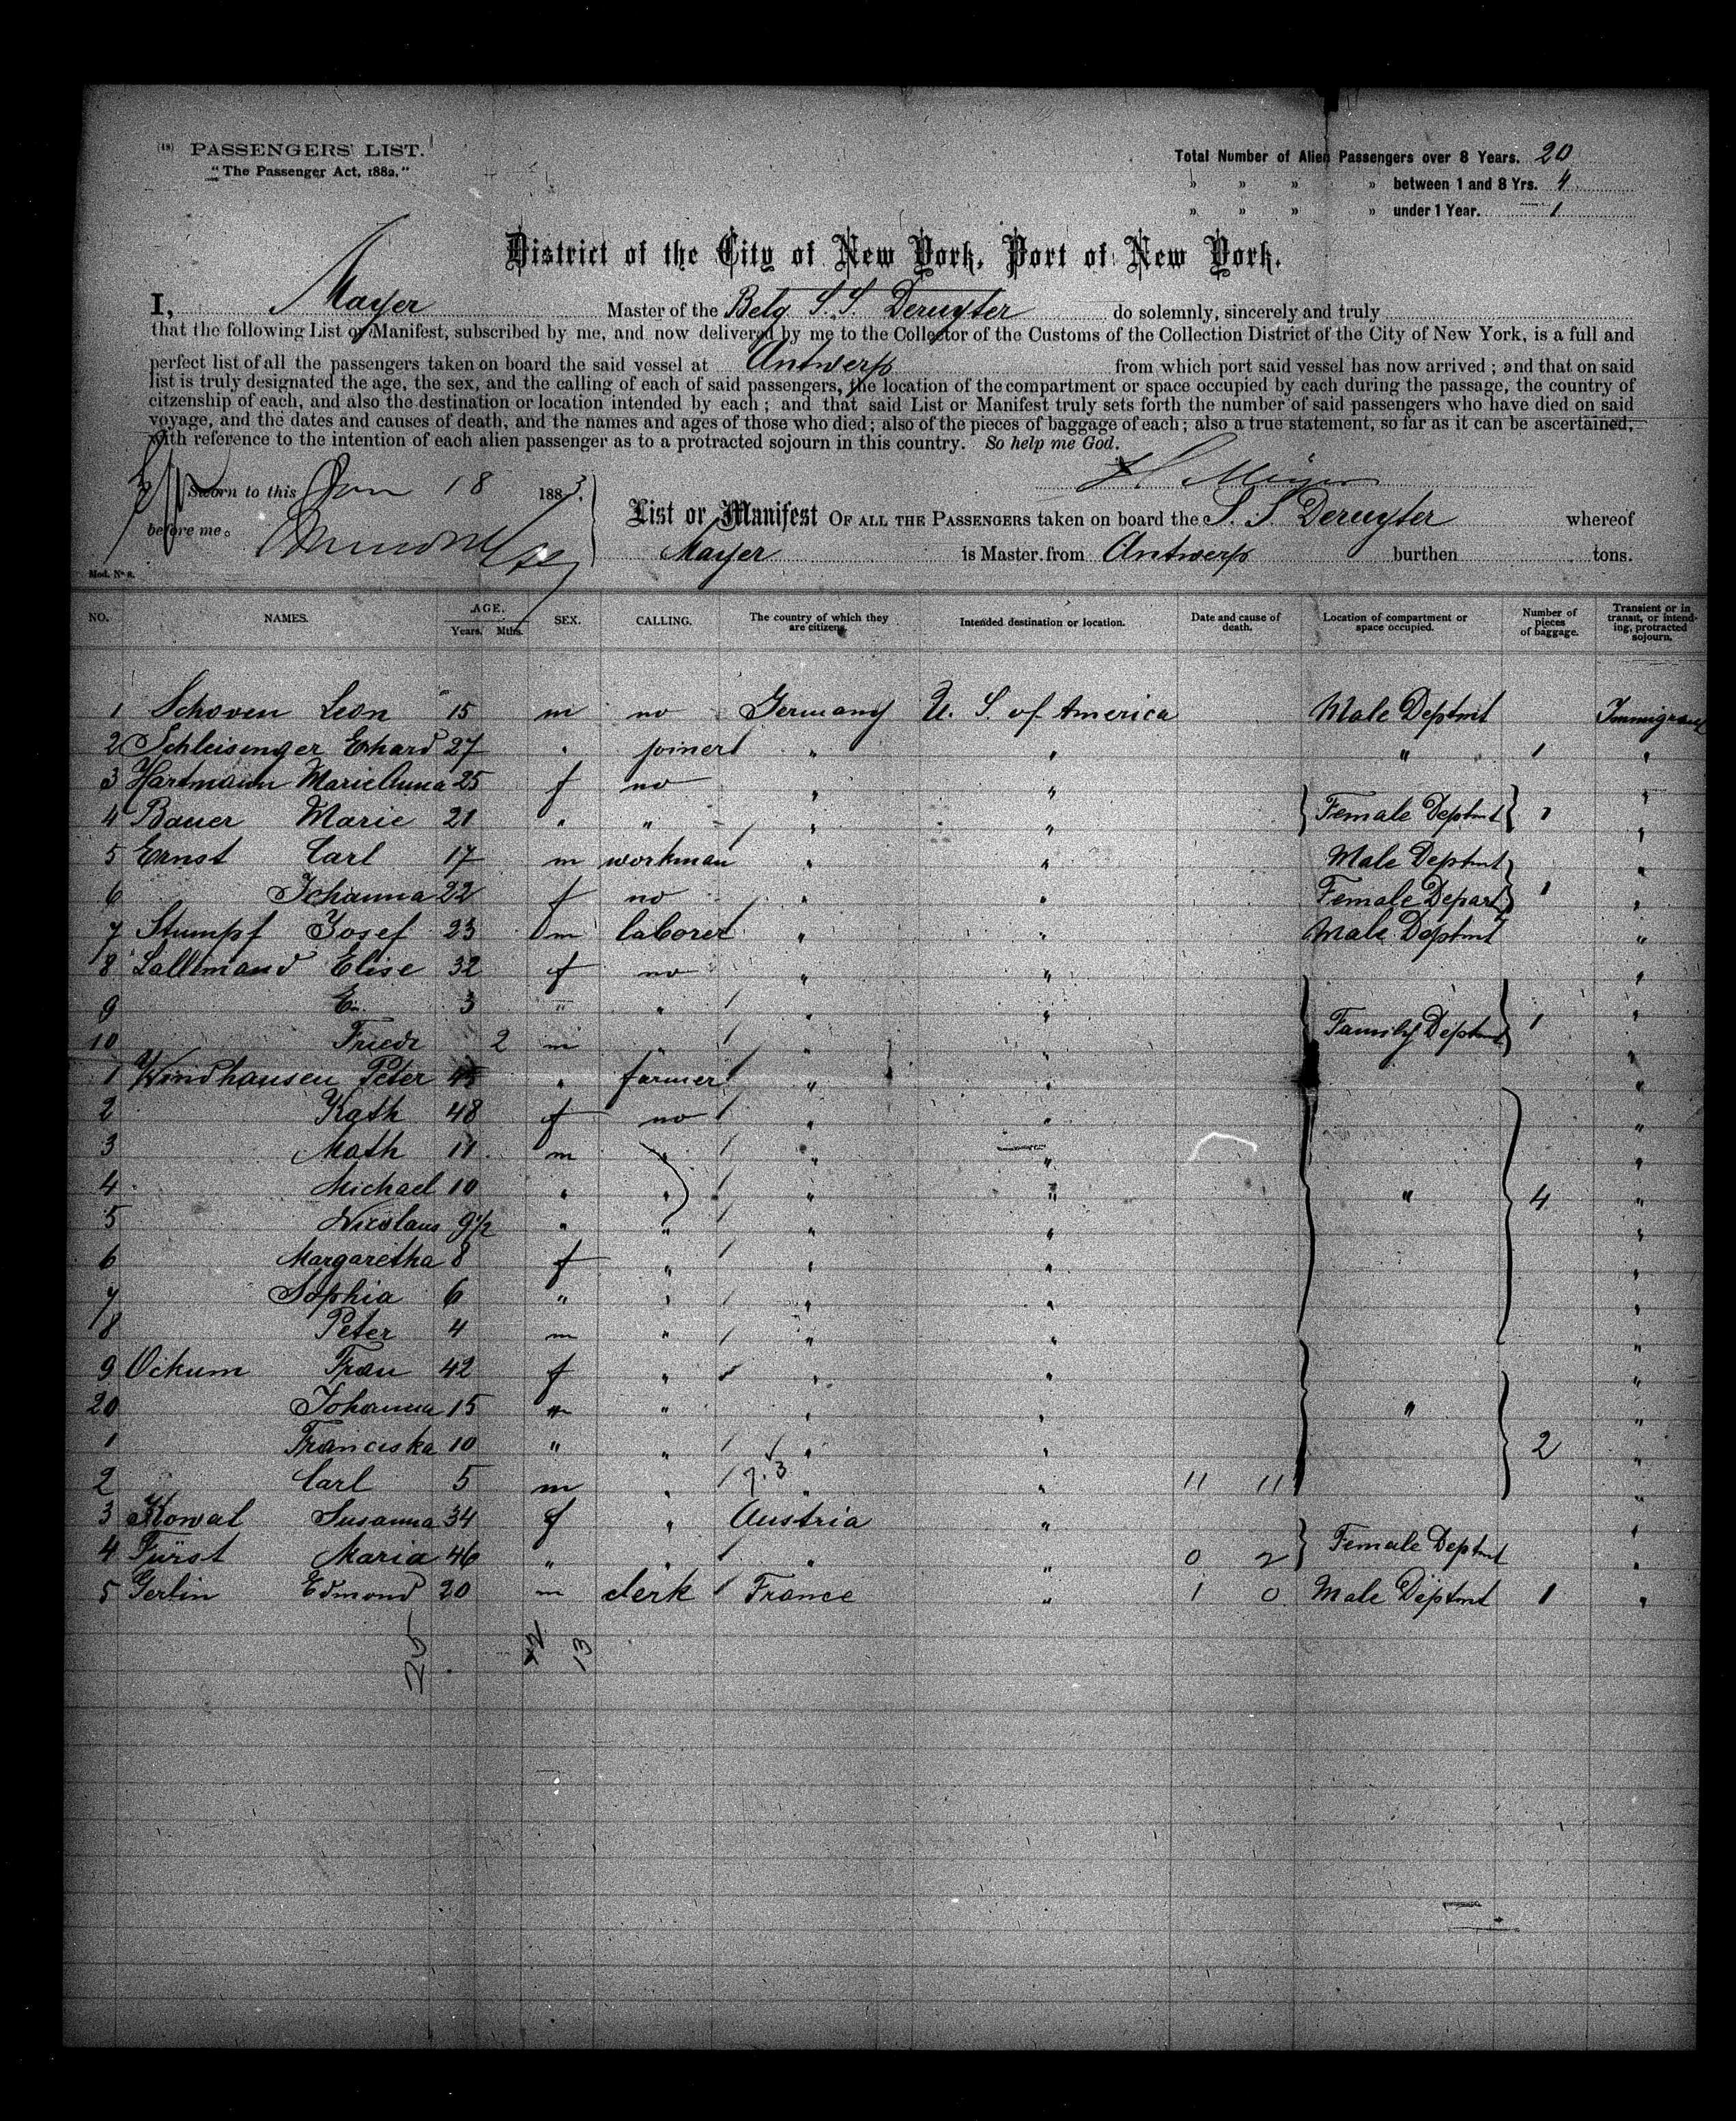 (18) PASSENGERS' LIST.
"The Passenger Act, 1882."
Total Number of Alien Passengers over 8 Years. 20
" " " " between 1 and 8 Yrs. 4
" " " " under 1 Year. 1
District of the City of New York, Port of New York.
I, Mayer Master of the Belg S.S. Deruyter do solemnly, sincerely and truly
that the following List or Manifest, subscribed by me, and now delivered by me to the Collector of the Customs of the Collection District of the City of New York, is a full and
perfect list of all the passengers taken on board the said vessel at Antwerp from which port said vessel has now arrived ; and that on said
list is truly designated the age, the sex, and the calling of each of said passengers, the location of the compartment or space occupied by each during the passage, the country of
citzenship of each, and also the destination or location intended by each ; and that said List or Manifest truly sets forth the number of said passengers who have died on said
voyage, and the dates and causes of death, and the names and ages of those who died ; also of the pieces of baggage of each ; also a true statement, so far as it can be ascertained,
with reference to the intention of each alien passenger as to a protracted sojourn in this country. So help me God.
Sworn to this Jan 18 1883.
before me.
List or Manifest OF ALL THE PASSENGERS taken on board the S. S Deruyter whereof
Mayer is Master from Antwerp burthen tons.
Mod. No 8.
NO. NAMES. AGE. Years. Mths. SEX. CALLING. The country of which they are citizens. Intended destination or location. Date and cause of death. Location of compartment or space occupied. Number of pieces of baggage. Transient or in transit, or intending, protracted sojourn.
1 Schoven Leon 15 m no Germany U. S. of America Male Deptmt Immigrant
2 Schleisinger Erhard 27 " joiner " " " 1 "
3 Hartmann Marie Anna 25 f no " " "
4 Bauer Marie 21 " " " " Female Deptmt 1 "
5 Ernst Carl 17 m workman " " Male Deptmt "
6 Johanna 22 f no " " Female Depart 1 "
7 Stumpf Josef 23 m laborer " " Male Deptmt "
8 Lallemand Elise 32 f no " " "
9 3 " " " " "
10 Friedr 2 m " " " Family Deptmt 1 "
1 Windhausen Peter " farmer " " "
2 Kath 48 f no " " "
3 Math 11 m " " " "
4 Michael 10 " " " " " 4 "
5 Nicolaus 9 1/2 " " " " "
6 Margaretha 8 f " " " "
7 Sophia 6 " " " " "
8 Peter 4 m " " " "
9 Ockum Frau 42 f " " " "
20 Johanna 15 " " " " " "
1 Franciska 10 " " " " 2 "
2 Carl 5 m " " " 11 11 "
3 Kowal Susanna 34 f " Austria " "
4 Fürst Maria 46 " " " " 0 2 Female Deptmt "
5 Gerlin Edmond 20 m clerk France " 1 0 Male Deptmt 1 "
25 12 13